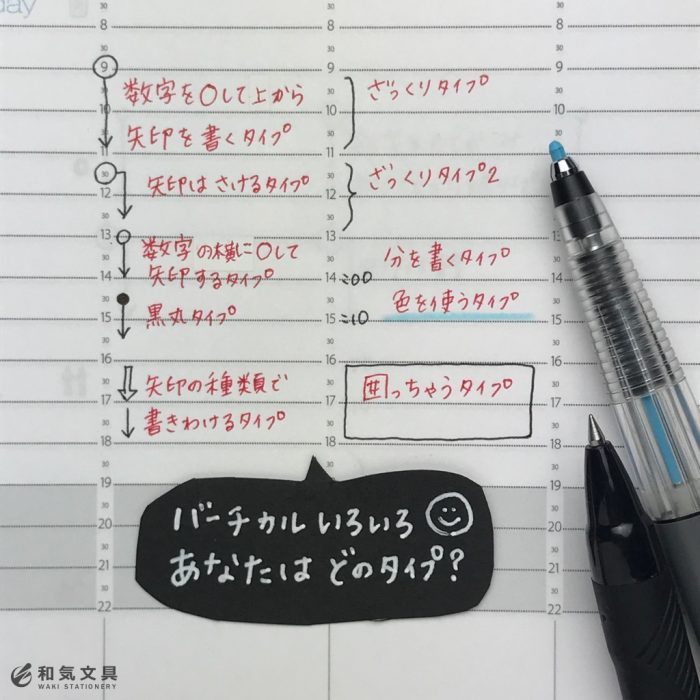 day
30
8
9
30
数字を○して上から
10
30
矢印を書くタイプ
11
30
矢印はさけるタイプ
12
30
13
数字の横に○して
14
矢印するタイプ
30
15
黒丸タイプ
30
16
30
矢印の種類で
17
30
書きわけるタイプ
18
30
19
30
20
30
21
30
22
30
8
30
9
30
ざっくりタイプ
10
30
11
30
ざっくりタイプ2
12
30
13
30
分を書くタイプ
14:00
30
色を使うタイプ
15:10
30
16
30
囲っちゃうタイプ
17
30
18
30
19
バーチカルいろいろ
あなたはどのタイプ?
30
8
30
9
30
10
30
12
30
13
30
14
30
15
30
16
30
17
30
18
30
19
30
20
30
21
30
22
和気文具
WAKI STATIONERY